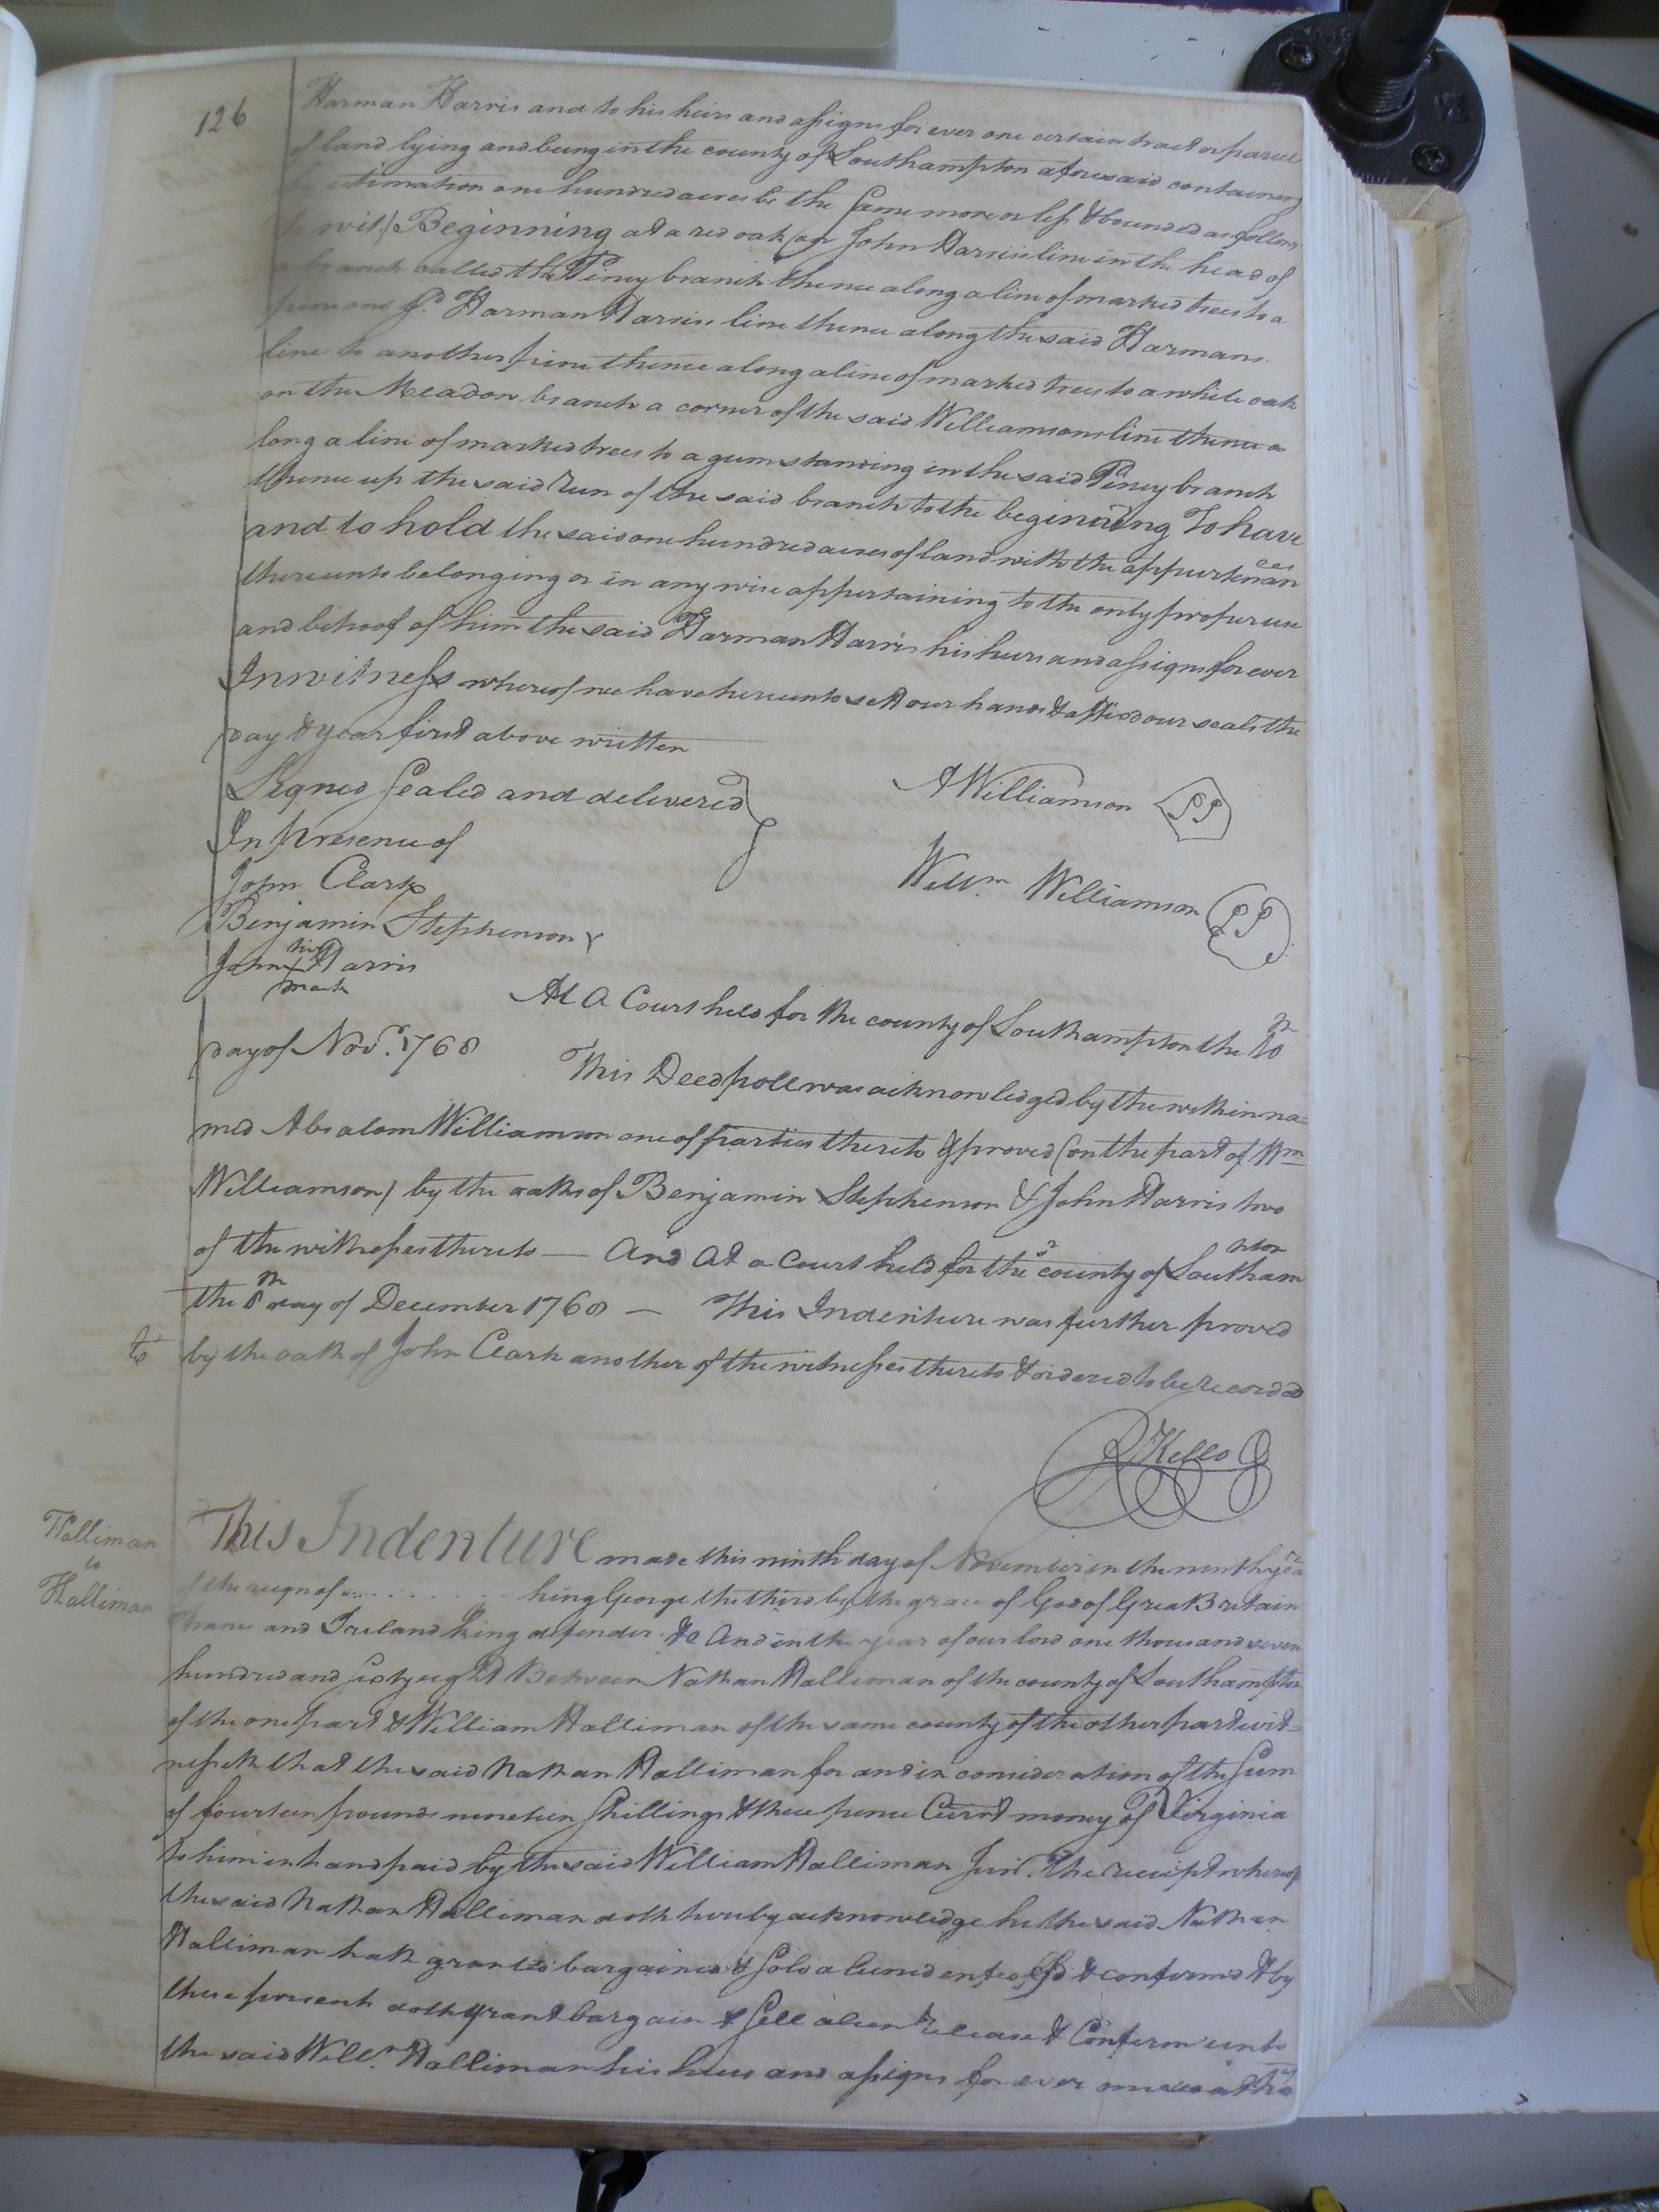 126
Harman Harris and to his heirs and assigns for ever one certain tract or parcel
of land lying and being in the county of Southampton aforesaid containing
by estimation one hundred acres be the same more or less & bounded as follows
to wit / Beginning at a red oak on John Harris's line in the head of
a branch called the Piney branch thence along a line of marked trees to a
pine on the sd. Harman Harris line thence along the said Harmans
line to another pine thence along a line of marked trees to a white oak
on the Meadow branch a corner of the said Williamsons line thence a
long a line of marked trees to a gum standing in the said Piney branch
thence up the said run of the said branch to the beginning To have
and to hold the said one hundred acres of land with the appurtenan ces
thereunto belonging or in any wise appertaining to the only proper use
and behoof of him the said Harman Harris his heirs and assigns for ever
In witness whereof we have hereunto sett our hands & affixd our seals the
day & year first above written
Signed Sealed and delivered
In presence of
John Clark
Benjamin Stephenson
John his + Harris
mark
A Williamson
Willm. Williamson
At a Court held for the county of Southampton the 10th
day of Novr. 1768
This Deed poll was acknowledged by the within na=
med Absalom Williamson one of parties thereto & proved (on the part of Wm
Williamson) by the oaths of Benjamin Stephenson & John Harris two
of the witnesses thereto — And at a Court held for the county of Southam pton
the 8th day of December 1768 — This Indenture was further proved
to
by the oath of John Clark another of the witnesses thereto & ordered to be recorded
R Kello
Halliman
to
Halliman
This Indenture made this ninth day of November in the ninth year
of the reign of . . . . . . . . king George the third by the grace of God of Great Britain
France and Ireland King defender &c And in the year of our lord one thousand seven
hundred and sixty eight Between Nathan Halliman of the county of Southampton
of the one part & William Halliman of the same county of the other part wit=
nesseth that the said Nathan Halliman for and in consideration of the sum
of fourteen pounds nineteen shillings & three pence Currt money of Virginia
to him in hand paid by the said William Halliman Junr. the receipt whereof
the said Nathan Halliman doth hereby acknowledge he the said Nathan
Halliman hath granted bargained & sold aliened enfeoffd & confirmed & by
these presents doth grant bargain & sell alien release & Confirm unto
the said Willm. Halliman his heirs and assigns for ever